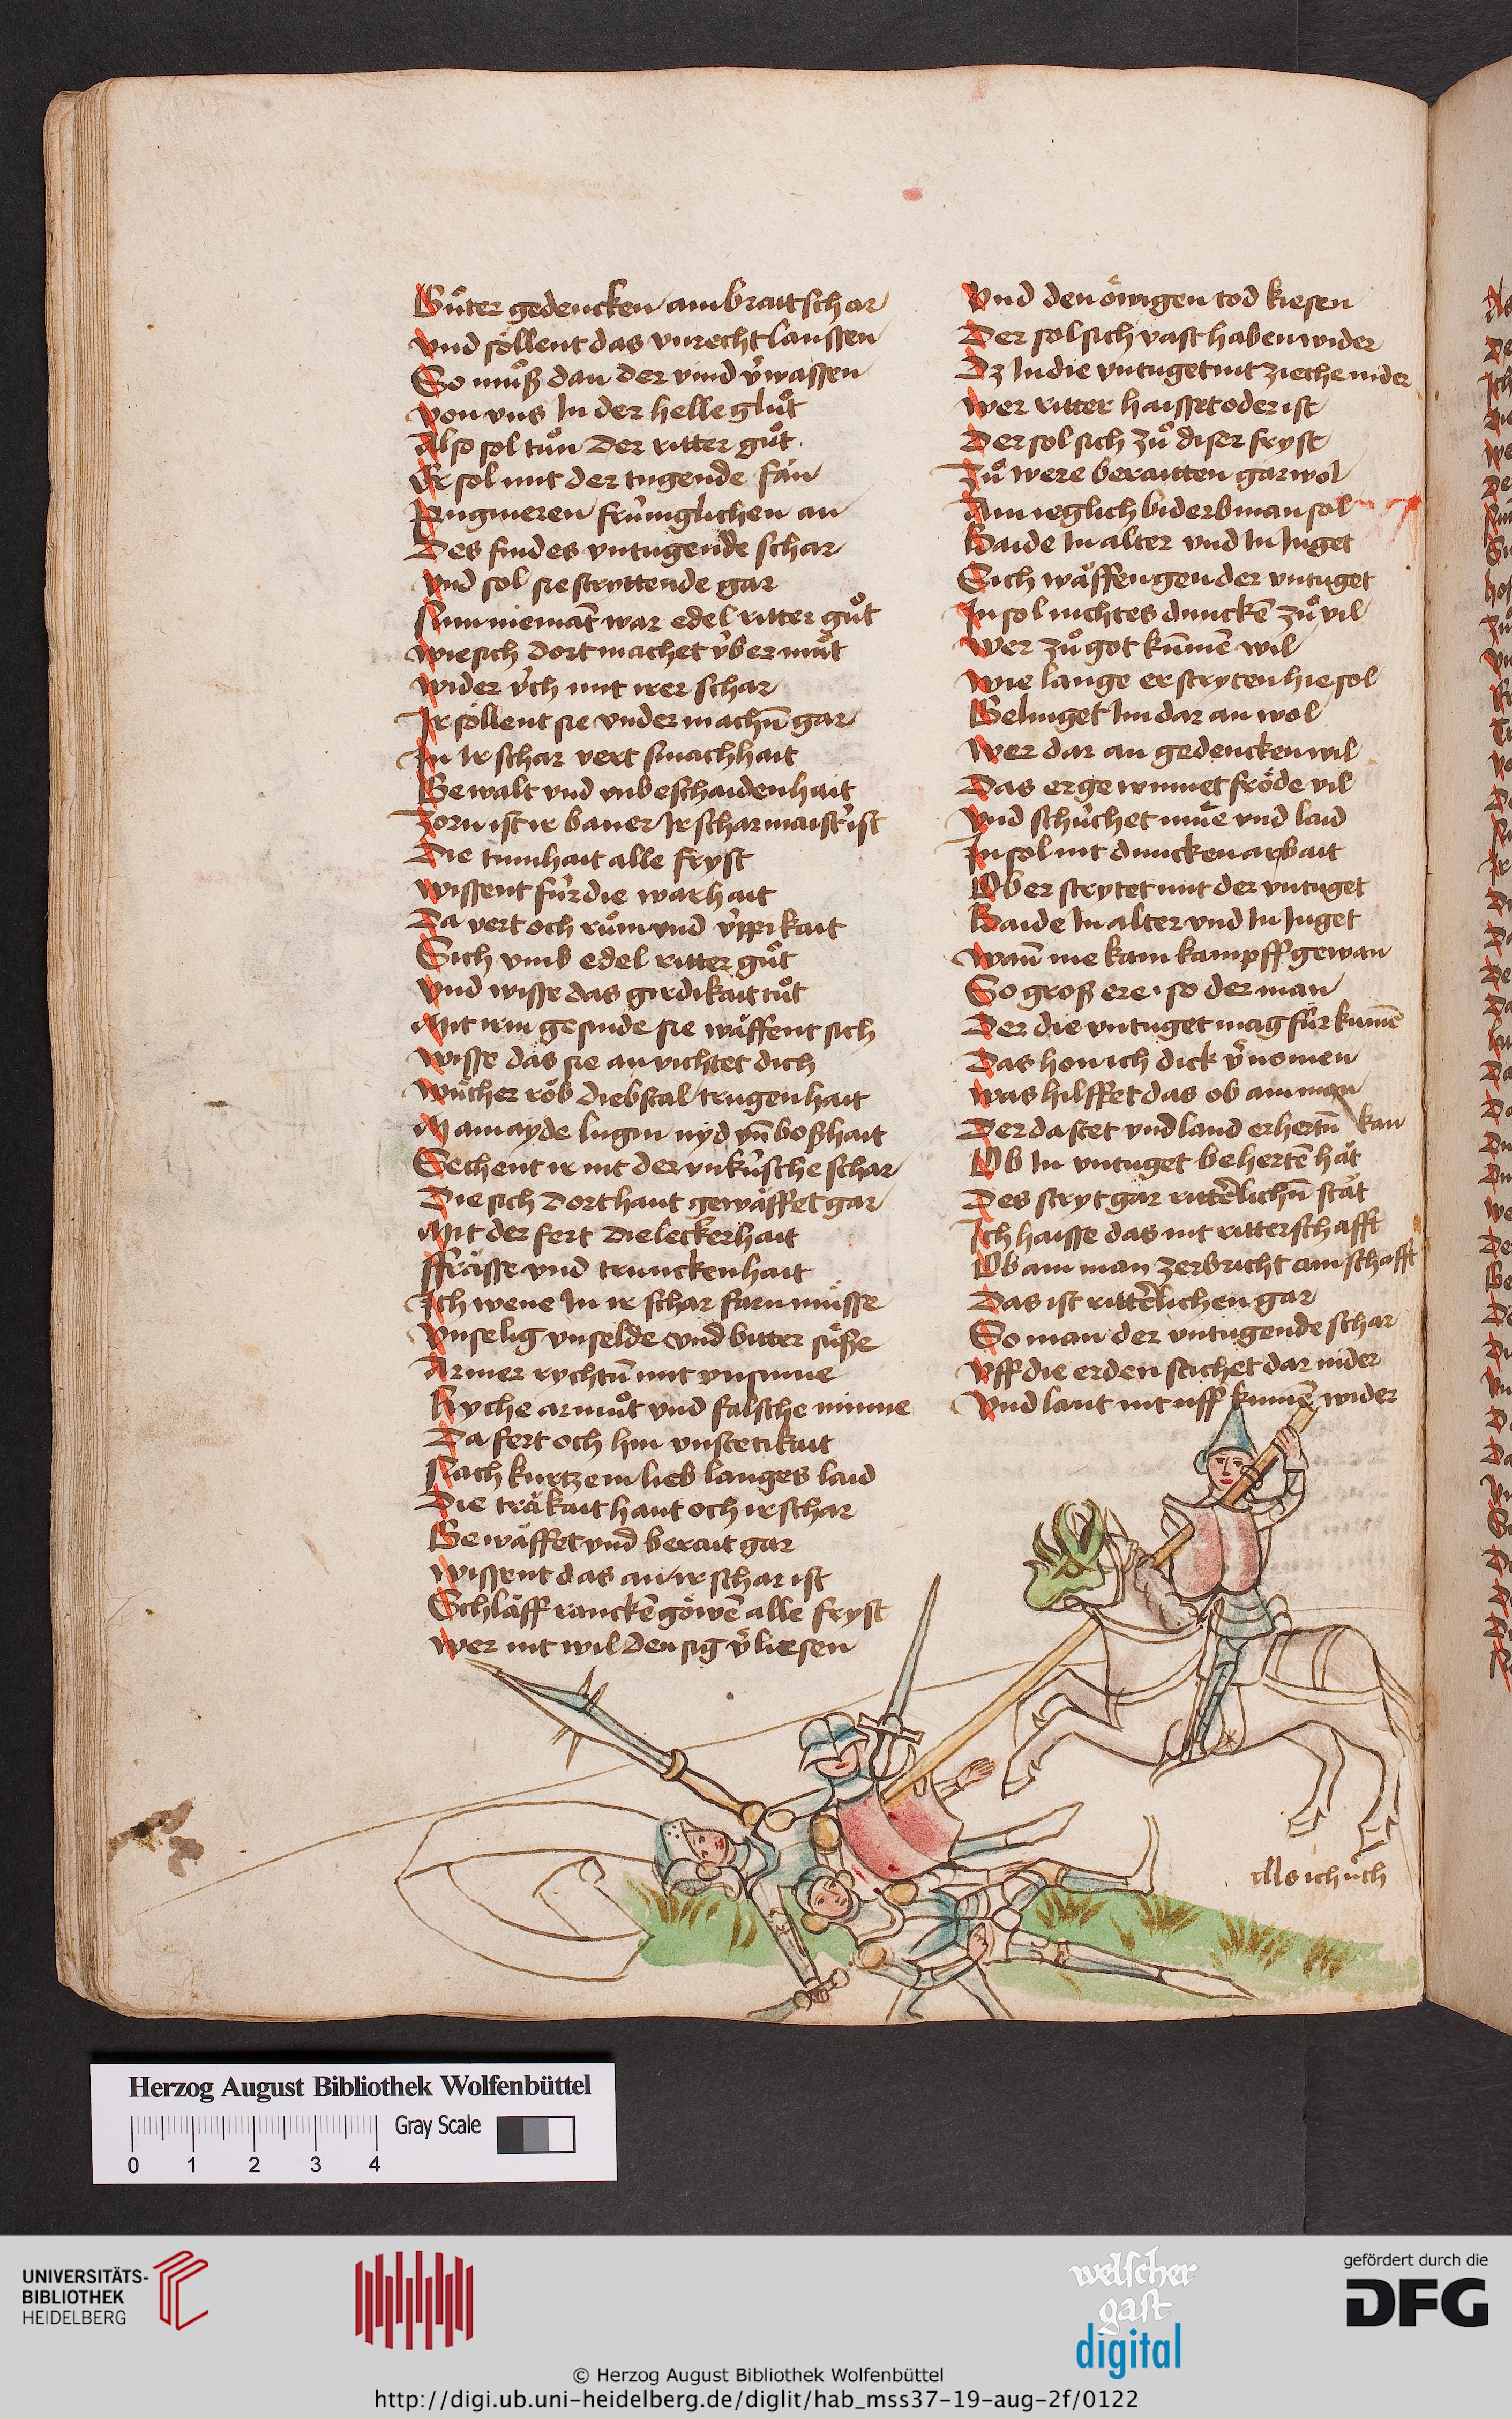 Gůter gedencken ain brait schar
Vnd söllent das vnrecht laussen
So můß dan der vind v̉wassen
Von vns In der helle glůt
Also sol tůn der ritter gůt.
Er sol mit der tugende fan
Pungnieren frúmglichen an
Des findes vntugende schar
Vnd sol sie stryttende gar
Nun niemāt war edel ritter gůt
Wie sich dort machet v́ber můt
Wider v́ch mit irer schar
Ir söllent sie vnder machn̄ gar
In Ir schar vert smachhait
Gewalt vnd vnbeschaidenhait
Zorn ist ir baner Ir schar maist' ist
Die tumhait alle fryst
Wissent fúr die warhait
Da vert och rům vnd v́ppikait
Sich vmb edel ritter gůt
Vnd wisse das girdikait tůt
Mit irm gesinde sie wäffent sich
Wisse das sie an vichtet dich
Wůcher röb diebstal trugenhait
Mainayde lugin nyd vn̄ boßhait
Sechent ir nit der vnkúsche schar
Die sich dort haut gewäffet gar
Mit der fert die leckerhait
ffrässe vnd trunckenhait
Ich wene In ir schar farn müsse
Vnselig vnselde vnd bitter süße
Armer rychtū mit vnsinne
Ryche armůt vnd falsche minne
Da fert och hin vnstetikait
Nach kurtzem lieb langes laid
Die träkait haut och ir schar
Gewäffet vnd berait gar
Wissent das an ir schar ist
Schläff ranckē göwē alle fryst
Wer nit wil den sig v̉liesen
Vnd den öwigen tod kiesen
Der sol sich vast haben wider
Dz In die vntuget nit zieche nider
Wer ritter haisset oder ist
Der sol sich zů diser fryst
Zů were beraitten gar wol
Ain ieglich biderb man sol
Baide In alter vnd In Iuget
Sich wäffen gen der vntuget
In sol nichtes dunckē zů vil
Wer zů got kūmē wil
Wie lange er stryten hie sol
Gelinget Im dar an wol
Wer dar an gedencken wil
Das er gewinnet fröde vil
Vnd schúchet müe vnd laid
In sol nit duncken arbait
Ob er strytet mit der vntuget
Baide In alter vnd In Iuget
Wan̄ nie kain kampff gewan
So groß ere. so der man
Der die vntuget mag für kumē
Das hon ich dick v̉nomen
Was hilffet das ob ain man
Der da stet vnd land erhertn̄ kan
Ob In vntuget behertē hät
Des stryt gar rittērlichn̄ stät
Ich haisse das nit ritterschafft
Ob ain man zerbricht ain schafft
Das ist rittērlichen gar
So man der vntugende schar
Vff die erden stichet dar nider
Vnd laut nit uff kumē wider
Als ich úch
Herzog August Bibliothek Wolfenbüttel
Gray Scale
0 1 2 3 4
UNIVERSITÄTS-
BIBLIOTHEK
HEIDELBERG
welscher
gast
digital
gefördert durch die
DFG
© Herzog August Bibliothek Wolfenbüttel
http://digi.ub.uni-heidelberg.de/diglit/hab_mss37-19-aug-2f/0122